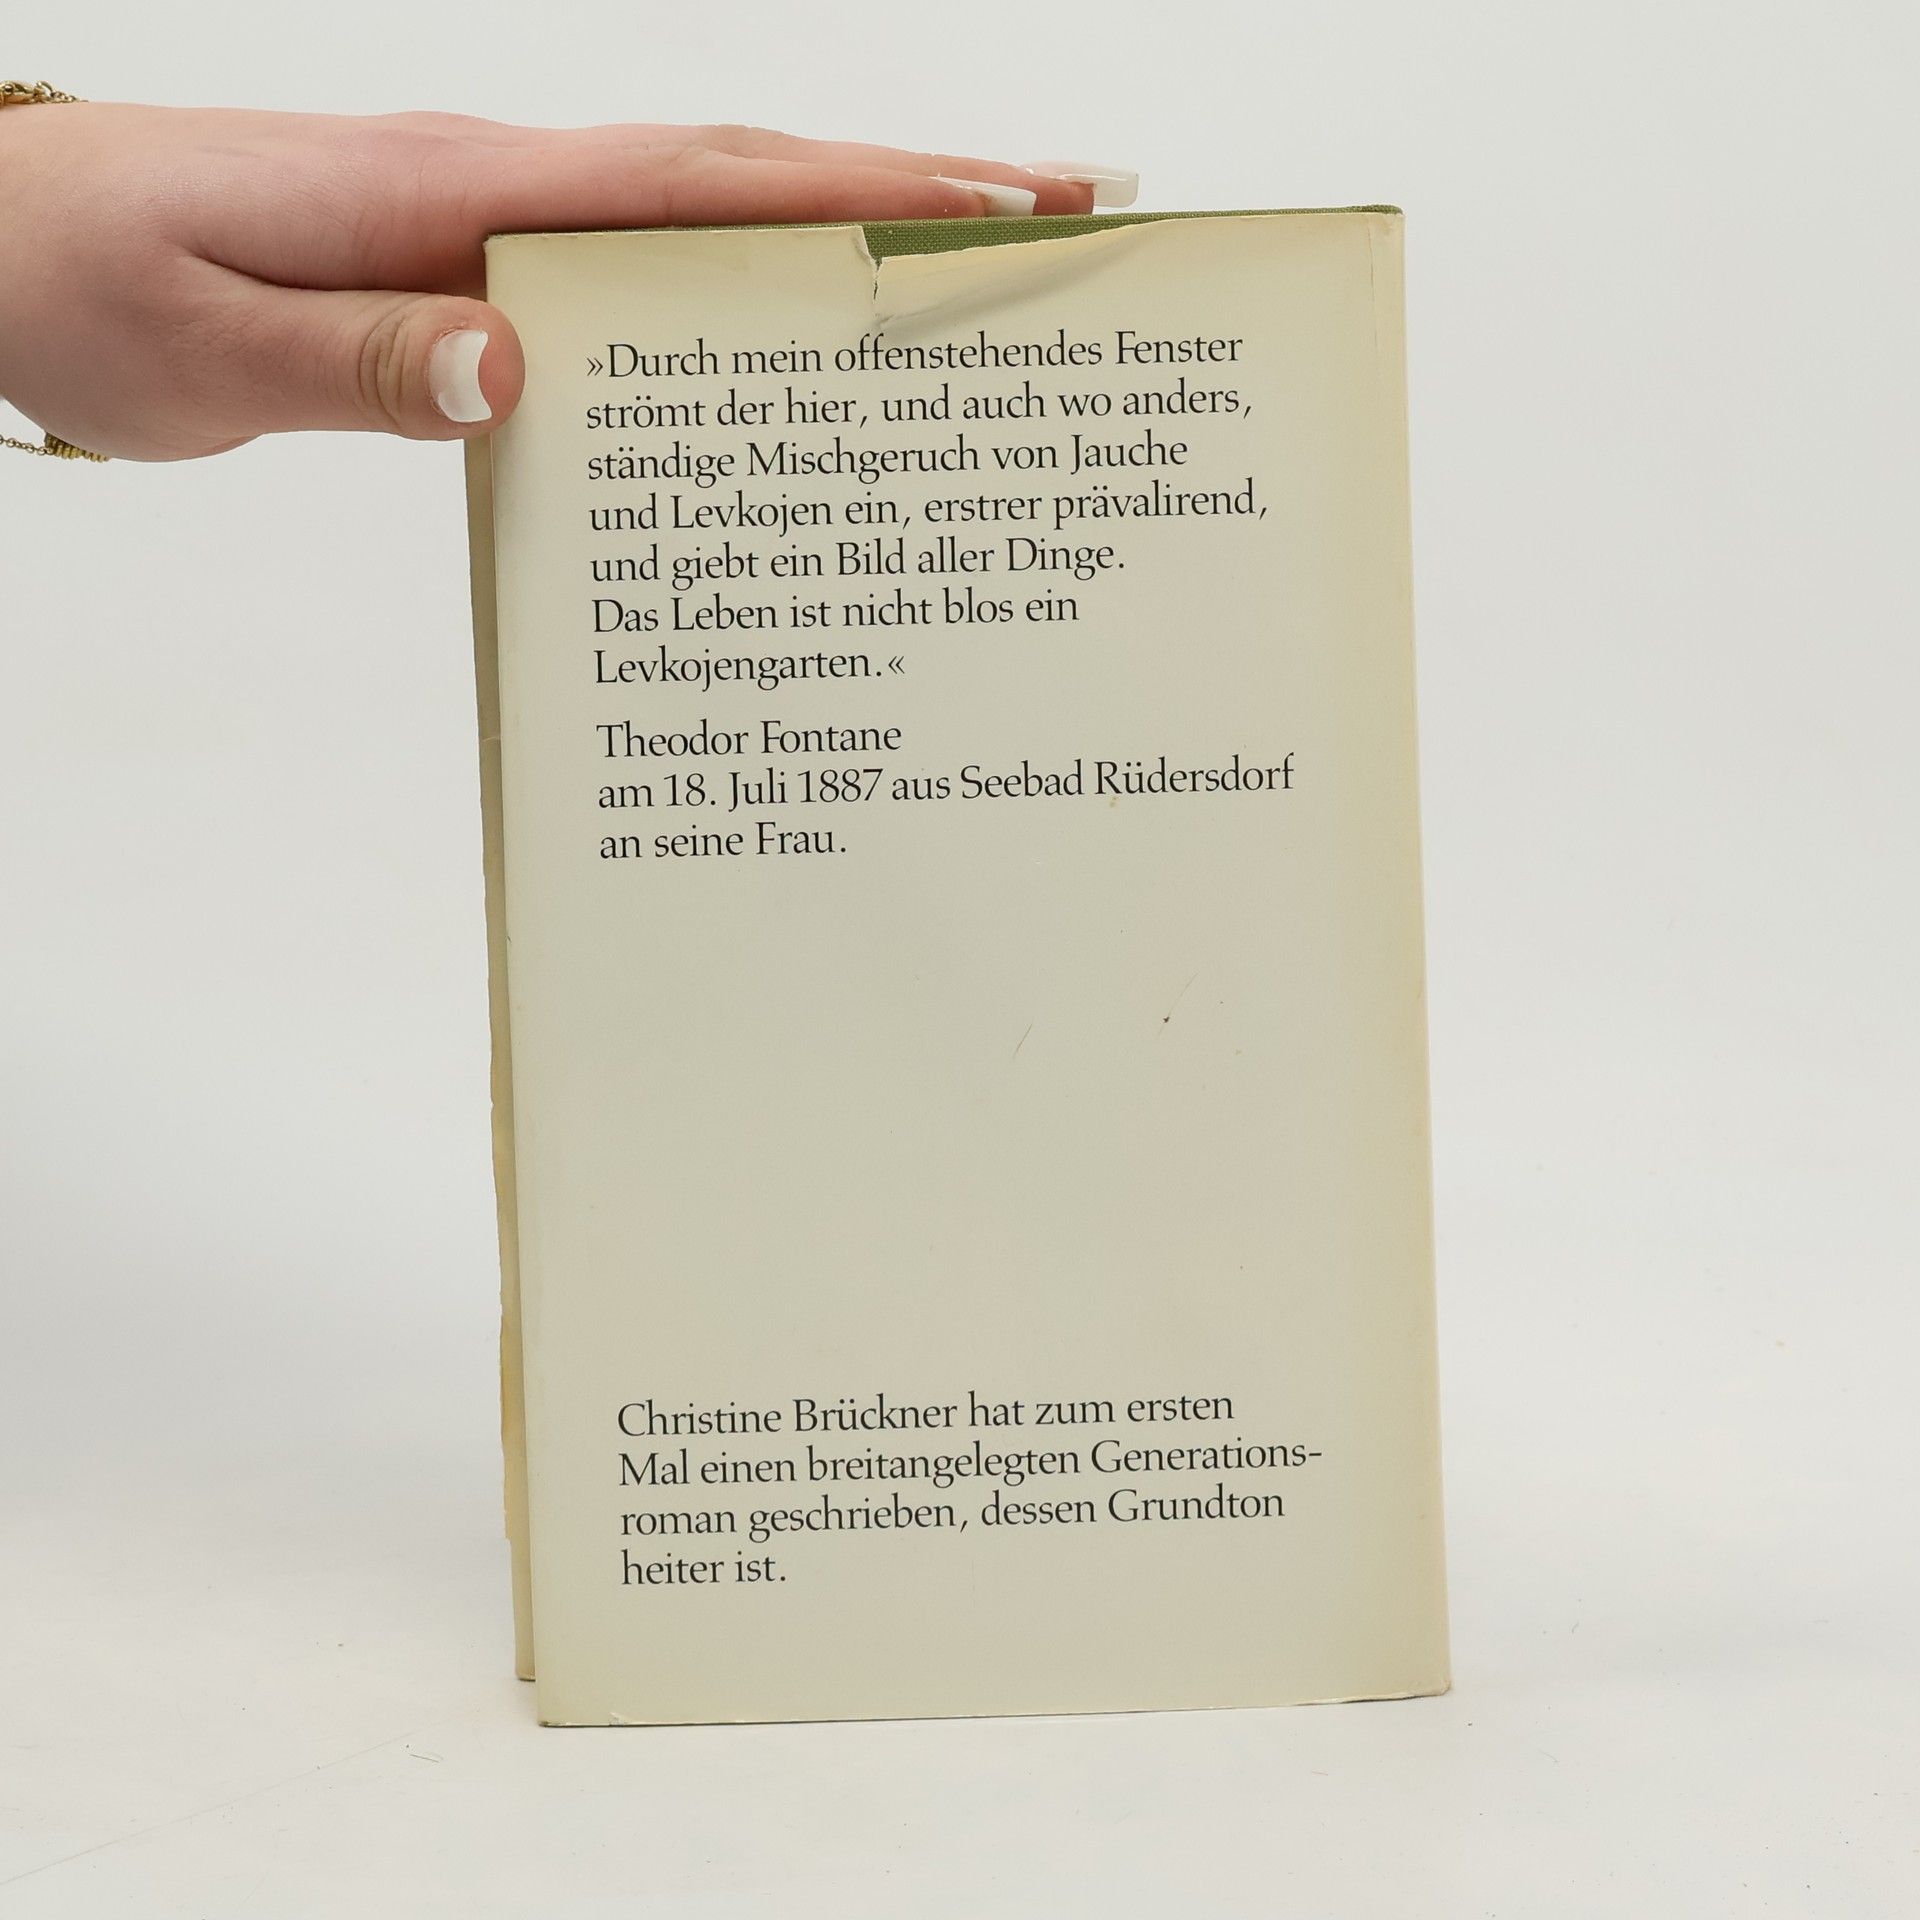 »Durch mein offenstehendes Fenster
strömt der hier, und auch wo anders,
ständige Mischgeruch von Jauche
und Levkojen ein, erstrer prävalirend,
und giebt ein Bild aller Dinge.
Das Leben ist nicht blos ein
Levkojengarten.«
Theodor Fontane
am 18. Juli 1887 aus Seebad Rüdersdorf
an seine Frau.
Christine Brückner hat zum ersten
Mal einen breitangelegten Generations-
roman geschrieben, dessen Grundton
heiter ist.